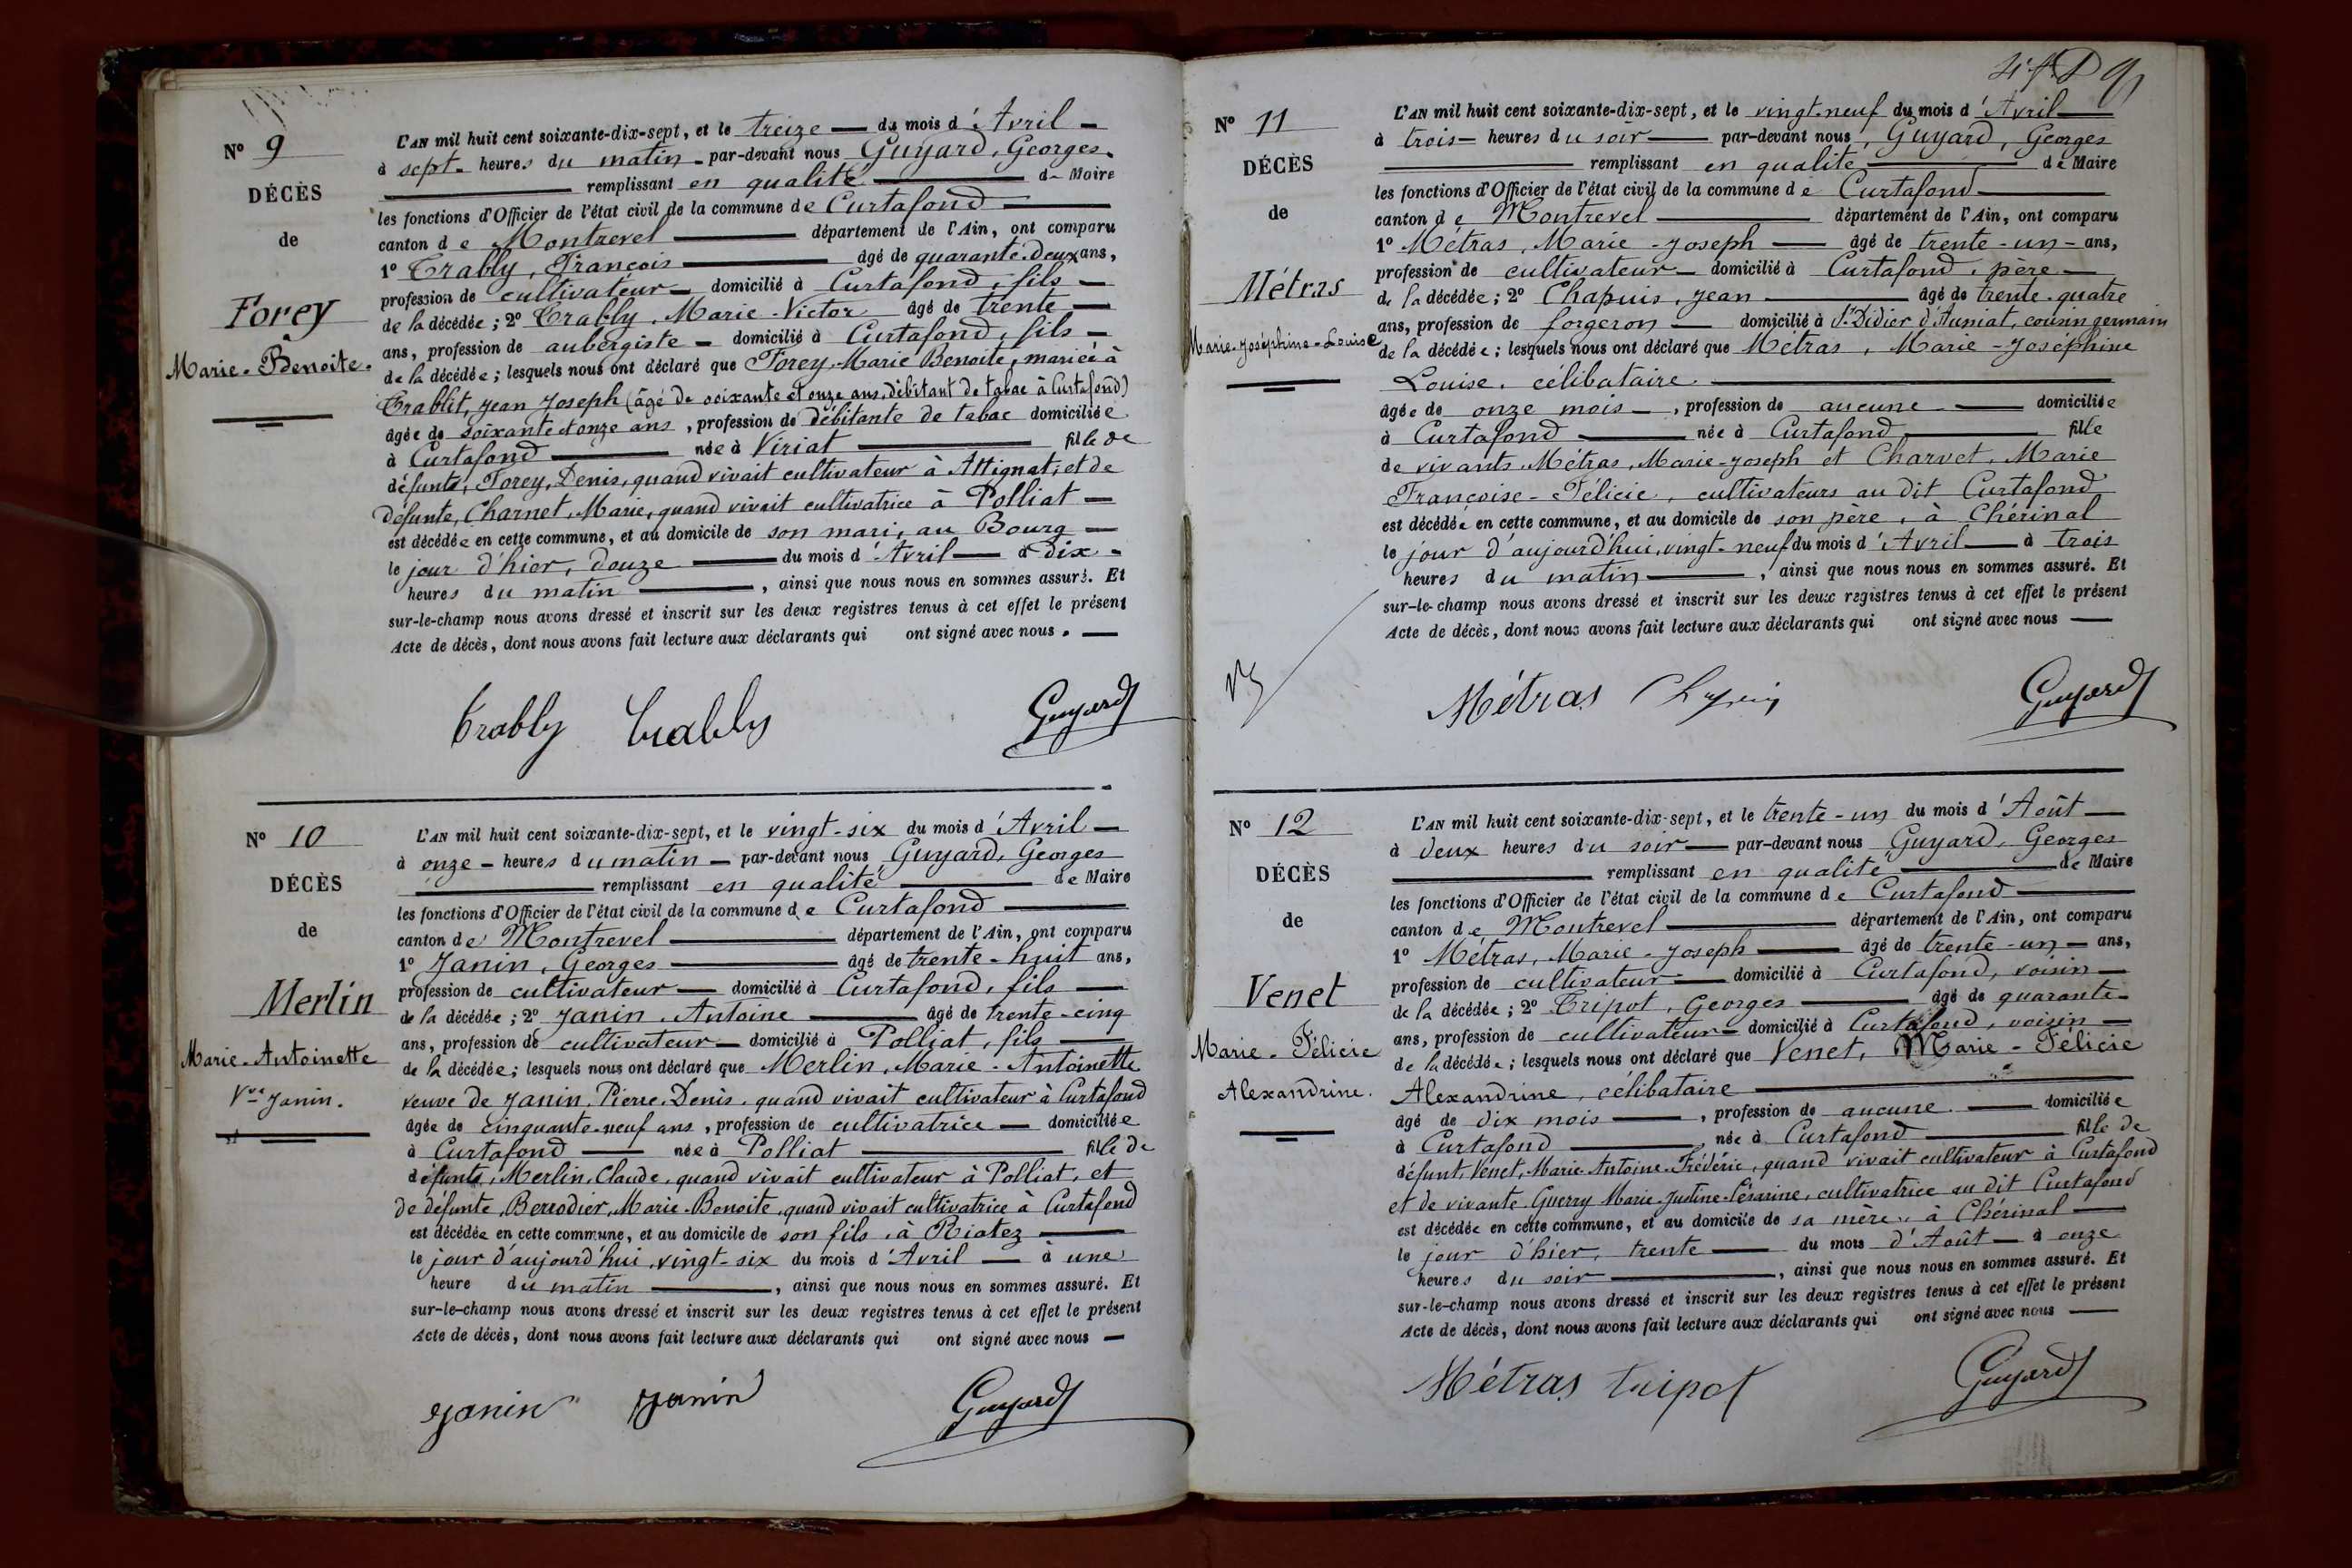 N° 9
DÉCÈS
de
Forey
Marie-Benoite.
L'AN mil huit cent soixante-dix-sept, et le treize — du mois d'Avril —
à sept — heures du matin — par-devant nous Guyard, Georges.
— remplissant en qualité — de Maire
les fonctions d'Officier de l'état civil de la commune de Curtafond —
canton de Montrevel — département de l'Ain, ont comparu
1° Trably, François — âgé de quarante-deux ans,
profession de cultivateur — domicilié à Curtafond, fils —
de la décédée ; 2° Trably, Marie-Victor âgé de trente —
ans, profession de aubergiste — domicilié à Curtafond, fils —
de la décédée ; lesquels nous ont déclaré que Forey, Marie Benoite, mariée à
Trablit, Jean Joseph (âgé de soixante et onze ans, débitant de tabac à Curtafond)
âgée de soixante et onze ans, profession de débitante de tabac domiciliée
à Curtafond — née à Viriat — fille de
défunts, Forey, Denis, quand vivait cultivateur à Attignat, et de
défunte, Charnet, Marie, quand vivait cultivatrice à Polliat —
est décédée en cette commune, et au domicile de son mari, au Bourg —
le jour d'hier, douze — du mois d'Avril — à dix —
heures du matin —, ainsi que nous nous en sommes assuré. Et
sur-le-champ nous avons dressé et inscrit sur les deux registres tenus à cet effet le présent
Acte de décès, dont nous avons fait lecture aux déclarants qui ont signé avec nous. —
Trably Trably Guyard
N° 10
DÉCÈS
de
Merlin
Marie-Antoinette
Vve Janin.
L'AN mil huit cent soixante-dix-sept, et le vingt-six du mois d'Avril —
à onze — heures du matin — par-devant nous Guyard, Georges
— remplissant en qualité — de Maire
les fonctions d'Officier de l'état civil de la commune de Curtafond —
canton de Montrevel — département de l'Ain, ont comparu
1° Janin, Georges — âgé de trente-huit ans,
profession de cultivateur — domicilié à Curtafond, fils —
de la décédée ; 2° Janin, Antoine — âgé de trente-cinq
ans, profession de cultivateur — domicilié à Polliat, fils —
de la décédée ; lesquels nous ont déclaré que Merlin, Marie-Antoinette
veuve de Janin, Pierre-Denis, quand vivait cultivateur à Curtafond
âgée de cinquante-neuf ans, profession de cultivatrice — domiciliée
à Curtafond — née à Polliat — fille de
défunts, Merlin, Claude, quand vivait cultivateur à Polliat, et
de défunte, Berrodier, Marie-Benoite, quand vivait cultivatrice à Curtafond
est décédée en cette commune, et au domicile de son fils, à Riatez —
le jour d'aujourd'hui, vingt-six du mois d'Avril — à une
heure du matin —, ainsi que nous nous en sommes assuré. Et
sur-le-champ nous avons dressé et inscrit sur les deux registres tenus à cet effet le présent
Acte de décès, dont nous avons fait lecture aux déclarants qui ont signé avec nous —
Janin Janin Guyard
N° 11
DÉCÈS
de
Métras
Marie-Joséphine-Louise
L'AN mil huit cent soixante-dix-sept, et le vingt-neuf du mois d'Avril —
à trois — heures du soir — par-devant nous, Guyard, Georges
— remplissant en qualité — de Maire
les fonctions d'Officier de l'état civil de la commune de Curtafond —
canton de Montrevel — département de l'Ain, ont comparu
1° Métras, Marie-Joseph — âgé de trente-un — ans,
profession de cultivateur — domicilié à Curtafond, père —
de la décédée ; 2° Chapuis, Jean — âgé de trente-quatre
ans, profession de forgeron — domicilié à St Didier d'Auniat, cousin germain
de la décédée ; lesquels nous ont déclaré que Métras, Marie-Joséphine
Louise, célibataire. —
âgée de onze mois —, profession de aucune — domiciliée
à Curtafond — née à Curtafond — fille
de vivants Métras, Marie-Joseph et Charvet, Marie
Françoise-Félicie, cultivateurs au dit Curtafond
est décédée en cette commune, et au domicile de son père, à Chérinal
le jour d'aujourd'hui, vingt-neuf du mois d'Avril — à trois
heures du matin —, ainsi que nous nous en sommes assuré. Et
sur-le-champ nous avons dressé et inscrit sur les deux registres tenus à cet effet le présent
Acte de décès, dont nous avons fait lecture aux déclarants qui ont signé avec nous —
Métras Chapuis Guyard
N° 12
DÉCÈS
de
Venet
Marie-Félicie
Alexandrine.
L'AN mil huit cent soixante-dix-sept, et le trente-un du mois d'Août —
à deux heures du soir — par-devant nous Guyard, Georges
— remplissant en qualité — de Maire
les fonctions d'Officier de l'état civil de la commune de Curtafond —
canton de Montrevel — département de l'Ain, ont comparu
1° Métras, Marie-Joseph — âgé de trente-un — ans,
profession de cultivateur — domicilié à Curtafond, voisin —
de la décédée ; 2° Tripot, Georges — âgé de quarante —
ans, profession de cultivateur — domicilié à Curtafond, voisin —
de la décédée ; lesquels nous ont déclaré que Venet, Marie-Félicie
Alexandrine, célibataire —
âgé de dix mois —, profession de aucune — domiciliée
à Curtafond — née à Curtafond — fille de
défunt, Venet, Marie-Antoine-Frédéric, quand vivait cultivateur à Curtafond
et de vivante Guerry Marie-Justine-Césarine, cultivatrice au dit Curtafond
est décédée en cette commune, et au domicile de sa mère, à Chérinal —
le jour d'hier, trente — du mois d'Août — à onze
heures du soir —, ainsi que nous nous en sommes assuré. Et
sur-le-champ nous avons dressé et inscrit sur les deux registres tenus à cet effet le présent
Acte de décès, dont nous avons fait lecture aux déclarants qui ont signé avec nous —
Métras tripot Guyard